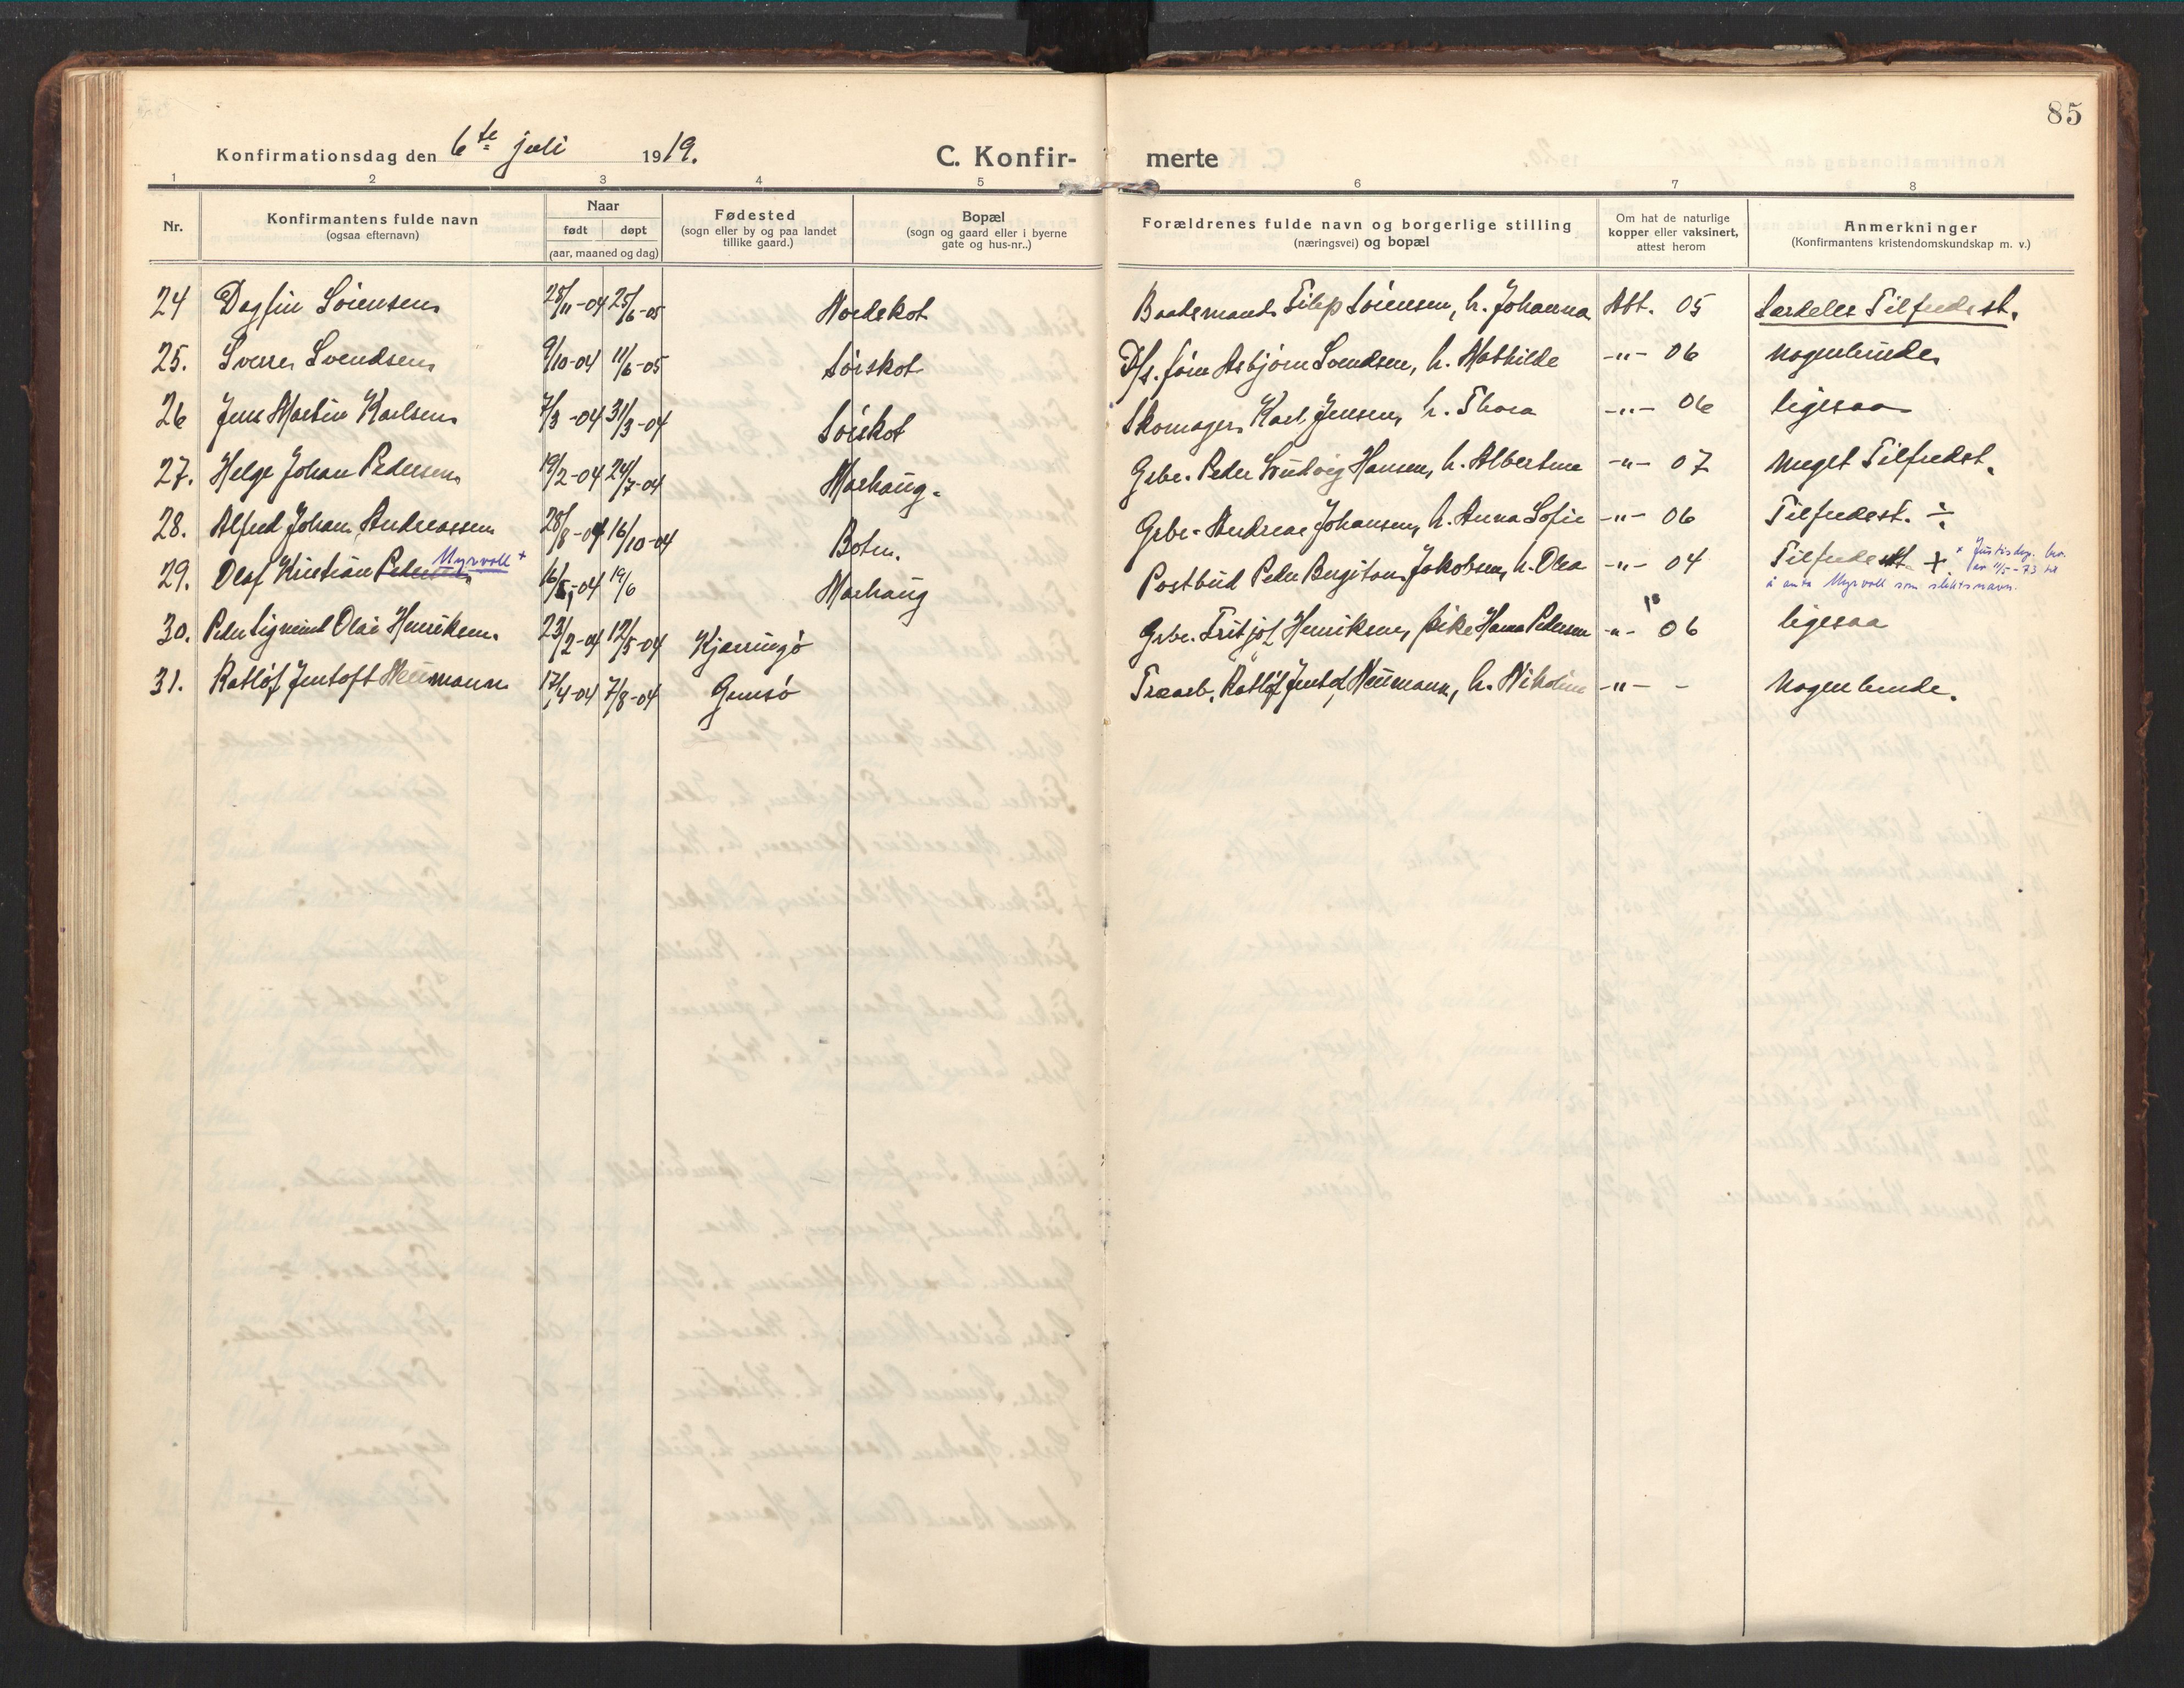 85
Konfirmationsdag den 6te juli 1919.
C. Konfir- merte
1 2 3 4 5 6 7 8
Nr.
Konfirmantens fulde navn
(ogsaa efternavn)
Naar
født døpt
(aar, maaned og dag)
Fødested
(sogn eller by og paa landet
tillike gaard.)
Bopæl
(sogn og gaard eller i byerne
gate og hus-nr..)
Forældrenes fulde navn og borgerlige stilling
(næringsvei) og bopæl
Om hat de naturlige
kopper eller vaksinert,
attest herom
Anmerkninger
(Konfirmantens kristendomskundskap m. v.)
24 Dagfin Sörensen 25/11-04 25/6-05 Nordskot Baadsmand Filip Sörensen, h. Johanna Att. 05 Særdeles Tilfredsst.
25. Sverre Svendsen 9/10-04 11/6-05 Sörskot D/s. förer Asbjörn Svendsen, h. Mathilde -"- 06 nogenlunde
26 Jens Martin Karlsen 7/3-04 31/3-04 Sörskot Skomager Karl Jensen, h. Thora -"- 06 ligesaa
27. Helge Johan Pedersen 19/2-04 24/7-04 Marhaug. Gbr. Peder Ludvig Hansen, h. Albertine -"- 07 Meget Tilfredst.
28. Alfred Johan Andreassen 28/8-04 16/10-04 Botn. Gbr. Andreas Johansen, h. Anna Sofie -"- 06 Tilfredsst. ÷
29. Olaf Kristian Pedersen Myrvoll + 16/5-04 19/6 Marhaug Postbud Peder Jakobsen, h. Olea -"- 04 Tilfredsst. + x Justisdep. bev. av 11/5-73 til
å anta Myrvoll som slektsnavn.
30. Peder Sigmund Olai Henriksen. 23/2-04 12/5-04 Kjerringö Gbr. Fritjof Henriksen, pike Hanna Pedersen -"- 06 ligesaa
31. Ratlöf Jentoft Neumann 17/4-04 7/8-04 Gimsö Træarb. Ratlöf Jentof Neumann, h. Nikoline -"- - Nogenlunde.